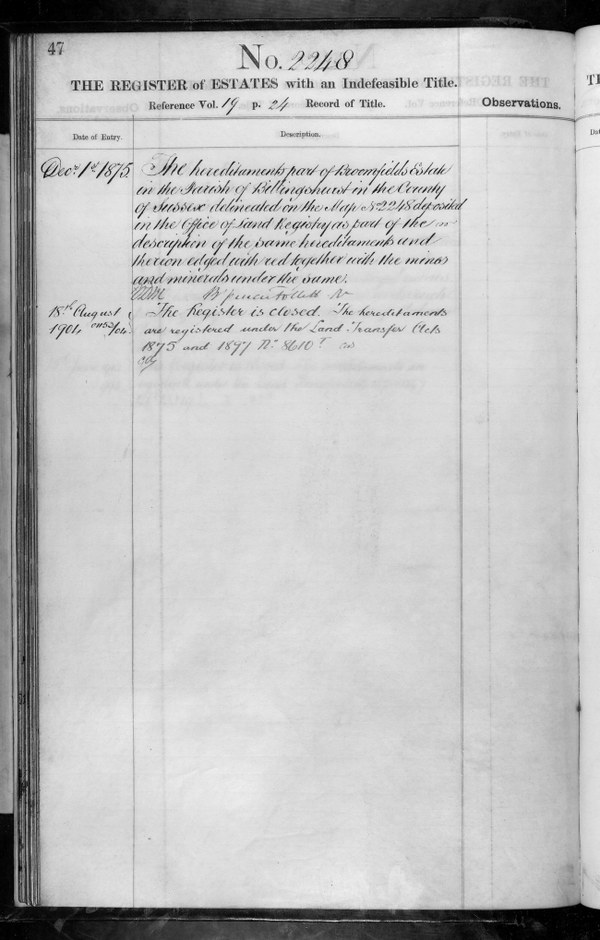 47
No. 2248
THE REGISTER of ESTATES with an Indefeasible Title.
Reference Vol. 19 p. 24 Record of Title.
Observations.
Date of Entry.
Description.
Decr 1st 1875
The hereditaments part of Broomfields Estate
in the Parish of Billingshurst in the County
of Sussex delineated on the Map No 2248 deposited
in the Office of Land Registry as part of the
description of the same hereditaments and
thereon edged with red together with the mines
and minerals under the same.
18th August
1904
The Register is closed. The hereditaments
are registered under the Land Transfer Acts
1875 and 1897 No 8610